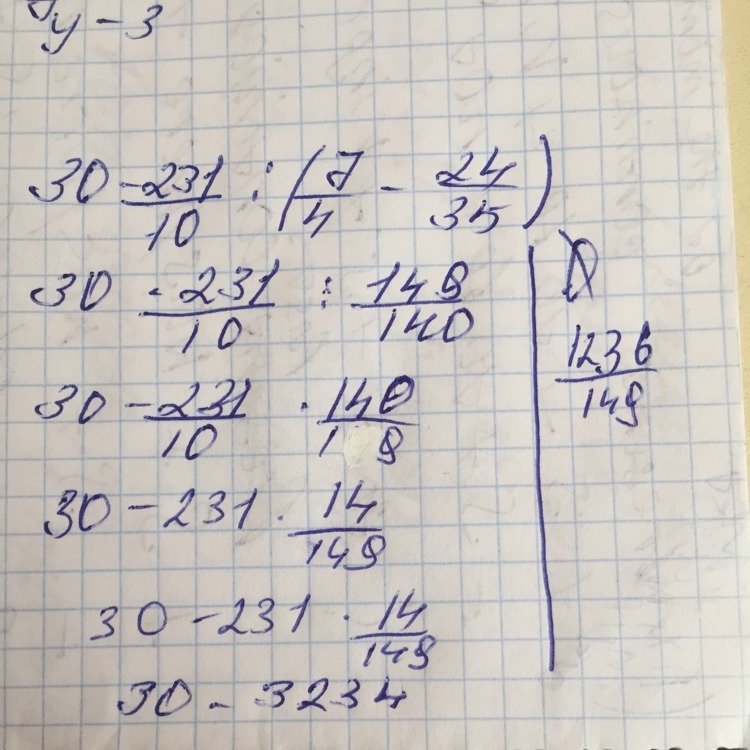 y - 3
30 - 231/10 : (7/4 - 24/35)
30 - 231/10 : 149/140
30 - 231/10 · 140/1 9
30 - 231 · 14/149
30 - 231 · 14/149
30 - 3234
1236/149